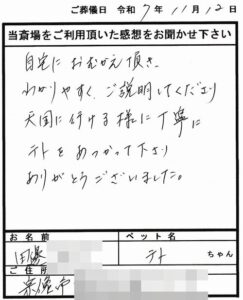 ご葬儀日 令和 7年 11月 12日
当斎場をご利用頂いた感想をお聞かせ下さい
自宅におむかえ頂き、
わかりやすく、ご説明してくださり
天国に行ける様に丁寧に
テトをあつかって下さり
ありがとうございました。
お名前
ペット名
田邊
テト ちゃん
ご住所